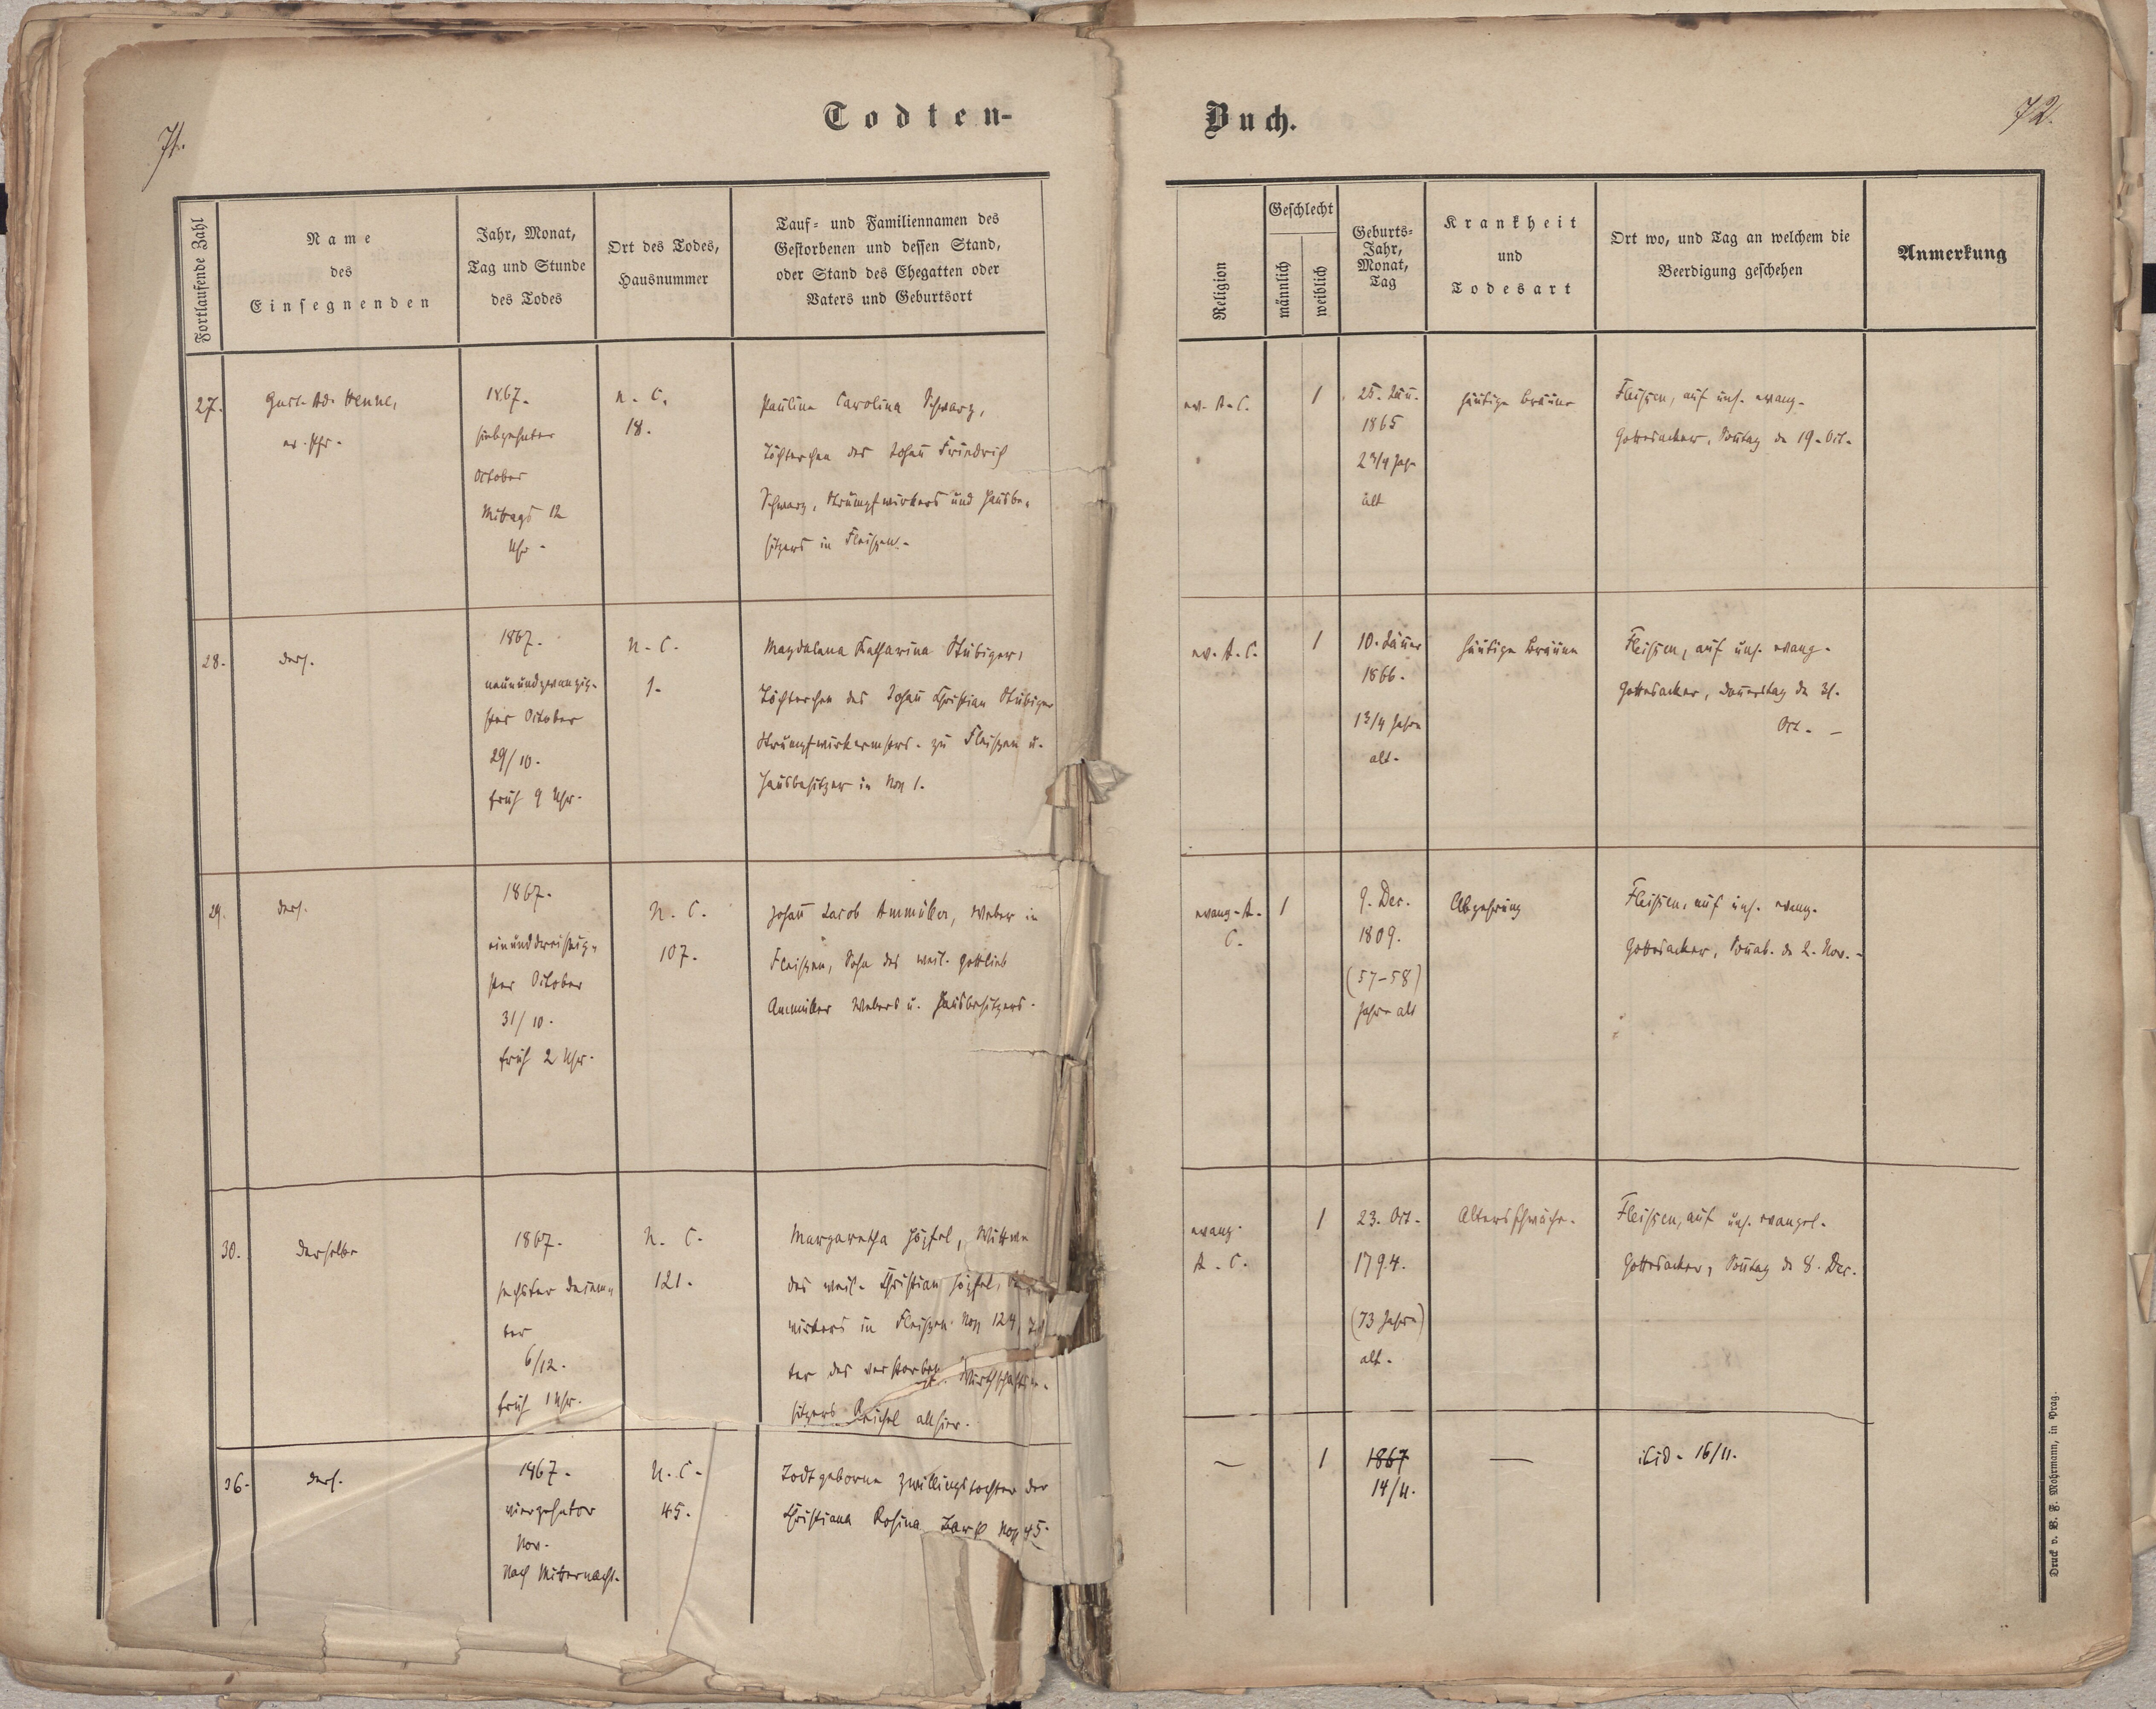 71.
Todten-
Buch.
72.
Fortlaufende Zahl
Name
des
Einsegnenden
Jahr, Monat,
Tag und Stunde
des Todes
Ort des Todes,
Hausnummer
Tauf- und Familiennamen des
Gestorbenen und dessen Stand,
oder Stand des Ehegatten oder
Vaters und Geburtsort
Religion
Geschlecht
männlich
weiblich
Geburts-
Jahr,
Monat,
Tag
Krankheit
und
Todesart
Ort wo, und Tag an welchem die
Beerdigung geschehen
Anmerkung
27.
Gust. Ad. Henne,
ev. Pfr.
1867.
siebzehnter
October
Mittags 12
Uhr.
n. C.
18.
Paulina Carolina Schwarz,
Töchterchen des Johañ Friedrich
Schwarz, Strumpfwirkers und Hausbe-
sitzers in Fleißen.
ev. A. C.
1
25. Jäñ.
1865
2 3/4 Jahr
alt
häutige Bräune
Fleißen, auf uns. evang.
Gottesacker, Soñtag d 19. Oct.
28.
ders.
1867.
neunundzwanzig-
ster October
29/10.
früh 9 Uhr.
N. C.
1.
Magdalena Katharina Stübiger,
Töchterchen des Johañ Christian Stübiger
Strumpfwirkermstrs. zu Fleißen u.
Hausbesitzer in Nro 1.
ev. A. C.
1
10. Jäñer
1866.
1 3/4 Jahre
alt.
häutige Bräune
Fleißen, auf uns. evang.
Gottesacker, Doñerstag d 31.
Oct. –
29.
ders.
1867.
einunddreißig-
ster October
31/10.
früh 2 Uhr.
N. C.
107.
Johañ Jacob Ammüller, Weber in
Fleißen, Sohn des weil. Gottlieb
Ammüller Webers u. Hausbesitzers.
evang. A.
C.
1
9. Dec.
1809.
(57–58)
Jahre alt
Abzehrung
Fleißen, auf uns. evang.
Gottesacker, Soñab. d 2. Nov. –
30.
derselbe
1867.
sechster Decem-
ber
6/12.
früh 1 Uhr.
N. C.
121.
Margaretha Höpfel, Wittwe
des weil. Christian Höpfel,
wirkers in Fleißen Nro 124,
ter des verstorben. Wirthschaftsbe-
sitzers Reichel allhier.
evang.
A. C.
1
23. Oct.
1794.
(73 Jahre)
alt.
Altersschwäche.
Fleißen, auf uns. evangel.
Gottesacker, Soñtag d 8. Dec.
36.
ders.
1867.
vierzehnter
Nov.
Nach Mitternacht.
N. C.
45.
Todtgeborne Zwillingstochter der
Christiana Rosina Nro 45.
—
1
1867
14/11.
—
ibid. 16/11.
Druck v. B. F. Mohrmann, in Prag.